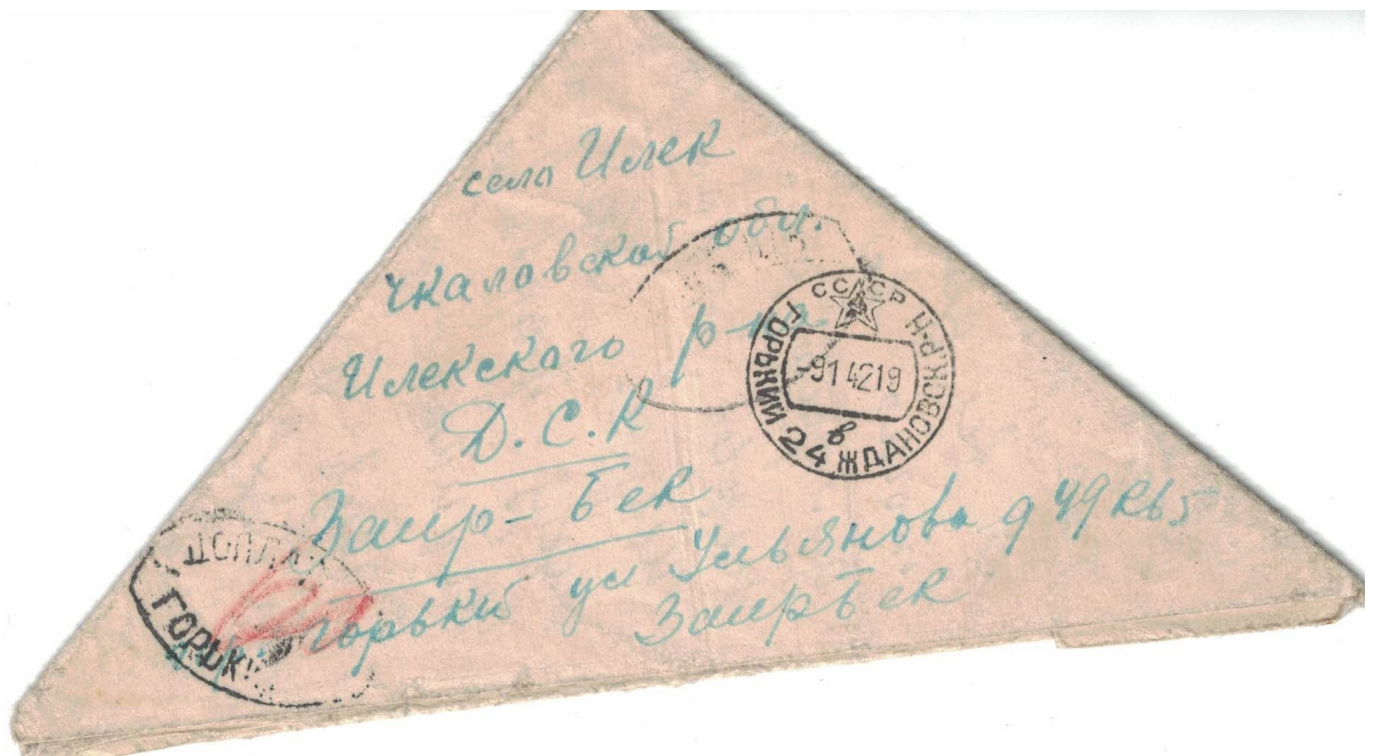 село Илек
Чкаловской обл.
Илекского р-на
Д.С.К
Заир-Бек
Горький ул Ульянова д 49 кв 5
ЗаирБек
СССР
ГОРЬКИЙ 24 ЖДАНОВСК.Р-Н
-9 1 42 19
в
ДОПЛА
ГОРЬК